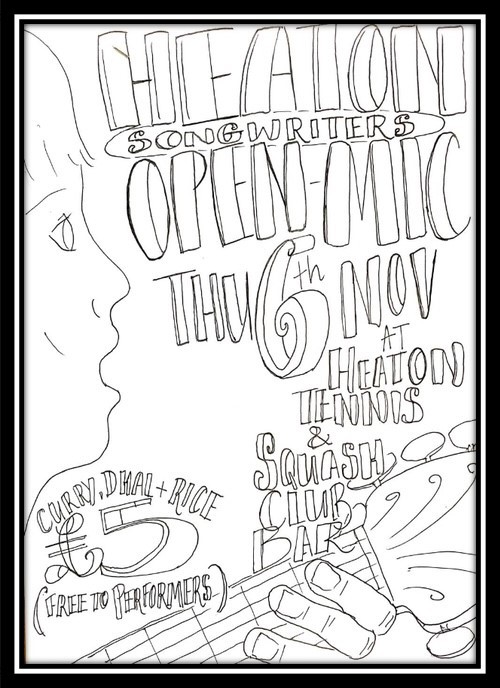 HEATON
SONGWRITERS
OPEN-MIC
THU 6th NOV
AT
HEATON
TENNIS
&
SQUASH
CLUB
BAR
CURRY, DHAL + RICE
£5
(FREE TO PERFORMERS)